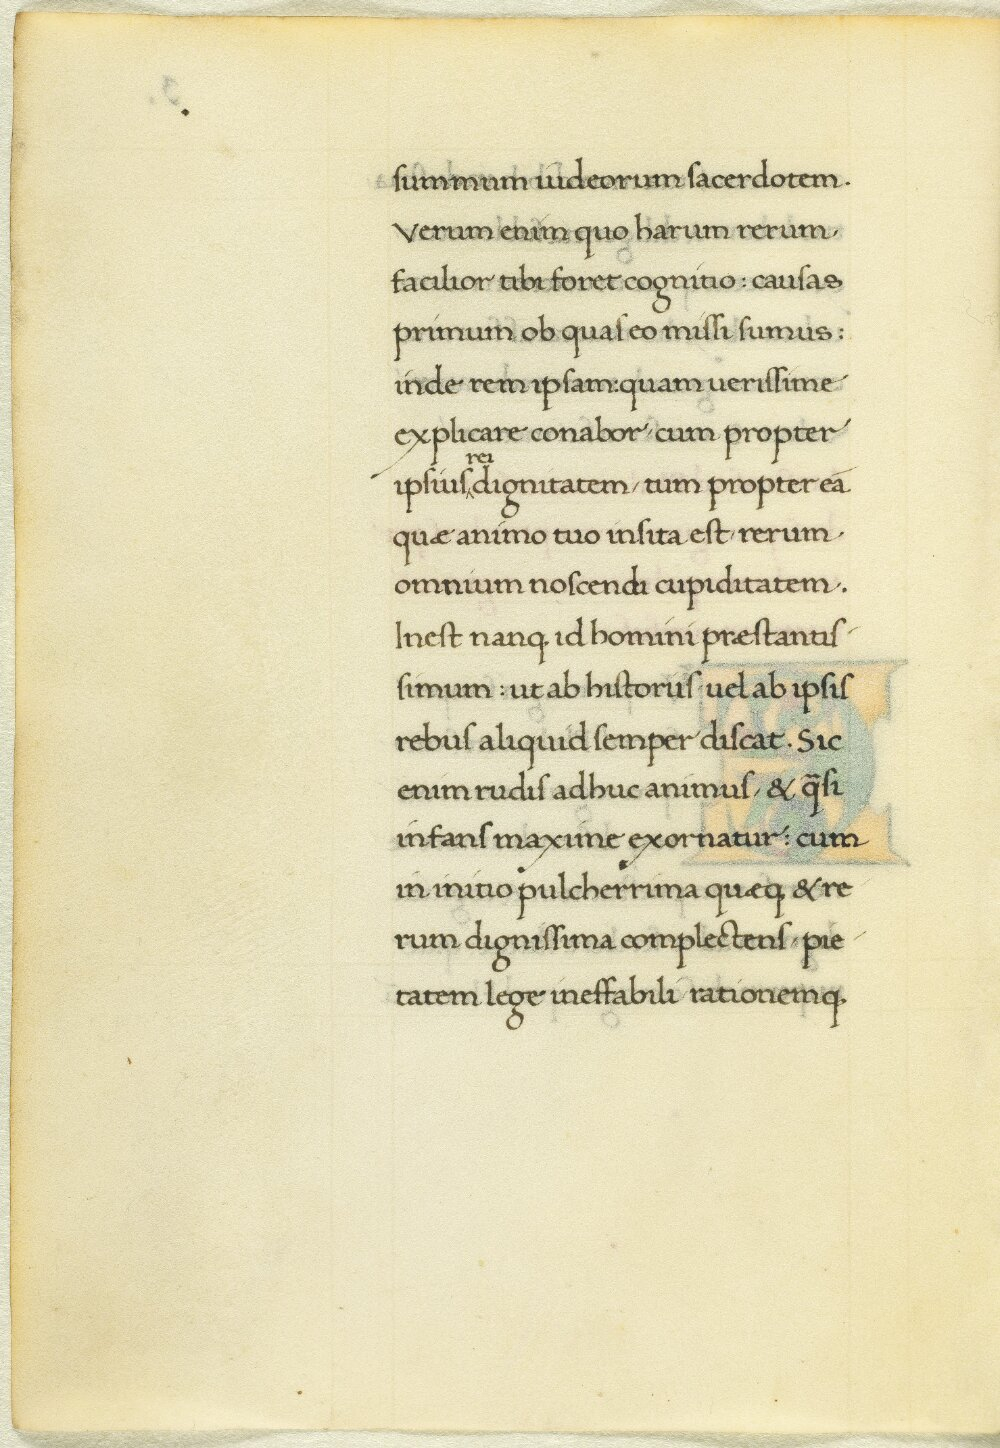 summum iudeorum sacerdotem.
Verum enim quo harum rerum,
facilior tibi foret cognitio: causas
primum ob quas eo missi sumus:
inde rem ipsam: quam uerissime
explicare conabor, cum propter
ipsius rei dignitatem, tum propter eā
quæ animo tuo insita est rerum
omnium noscendi cupiditatem.
Inest nanq. id homini præstantis
simum: ut ab historiis uel ab ipsis
rebus aliquid semper discat. Sic
enim rudis adhuc animus, & q̄si
infans maxime exornatur: cum
in initio pulcherrima quæq. & re
rum dignissima complectens, pie
tatem lege ineffabili rationemq.